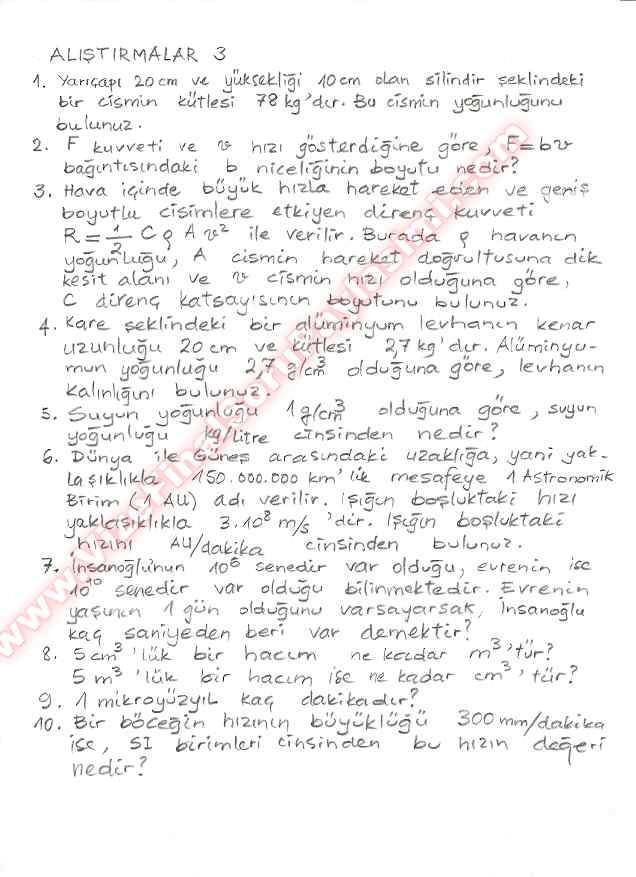 ALIŞTIRMALAR 3
1. Yarıçapı 20 cm ve yüksekliği 10 cm olan silindir şeklindeki
bir cismin kütlesi 78 kg'dır. Bu cismin yoğunluğunu
bulunuz.
2. F kuvveti ve v hızı gösterdiğine göre, F=bv
bağıntısındaki b niceliğinin boyutu nedir?
3. Hava içinde büyük hızla hareket eden ve geniş
boyutlu cisimlere etkiyen direnç kuvveti
R = 1/2 C ρ A v² ile verilir. Burada ρ havanın
yoğunluğu, A cismin hareket doğrultusuna dik
kesit alanı ve v cismin hızı olduğuna göre,
C direnç katsayısının boyutunu bulunuz.
4. Kare şeklindeki bir alüminyum levhanın kenar
uzunluğu 20 cm ve kütlesi 2,7 kg'dır. Alüminyu-
mun yoğunluğu 2,7 g/cm³ olduğuna göre, levhanın
kalınlığını bulunuz.
5. Suyun yoğunluğu 1 g/cm³ olduğuna göre, suyun
yoğunluğu kg/litre cinsinden nedir?
6. Dünya ile Güneş arasındaki uzaklığa, yani yak-
laşıklıkla 150.000.000 km'lik mesafeye 1 Astronomik
Birim (1 AU) adı verilir. Işığın boşluktaki hızı
yaklaşıklıkla 3.10⁸ m/s 'dir. Işığın boşluktaki
hızını AU/dakika cinsinden bulunuz.
7. İnsanoğlunun 10⁶ senedir var olduğu, evrenin ise
10¹⁰ senedir var olduğu bilinmektedir. Evrenin
yaşının 1 gün olduğunu varsayarsak, İnsanoğlu
kaç saniyeden beri var demektir?
8. 5 cm³ 'lük bir hacim ne kadar m³'tür?
5 m³ 'lük bir hacim ise ne kadar cm³ 'tür?
9. 1 mikroyüzyıl kaç dakikadır?
10. Bir böceğin hızının büyüklüğü 300 mm/dakika
ise, SI birimleri cinsinden bu hızın değeri
nedir?